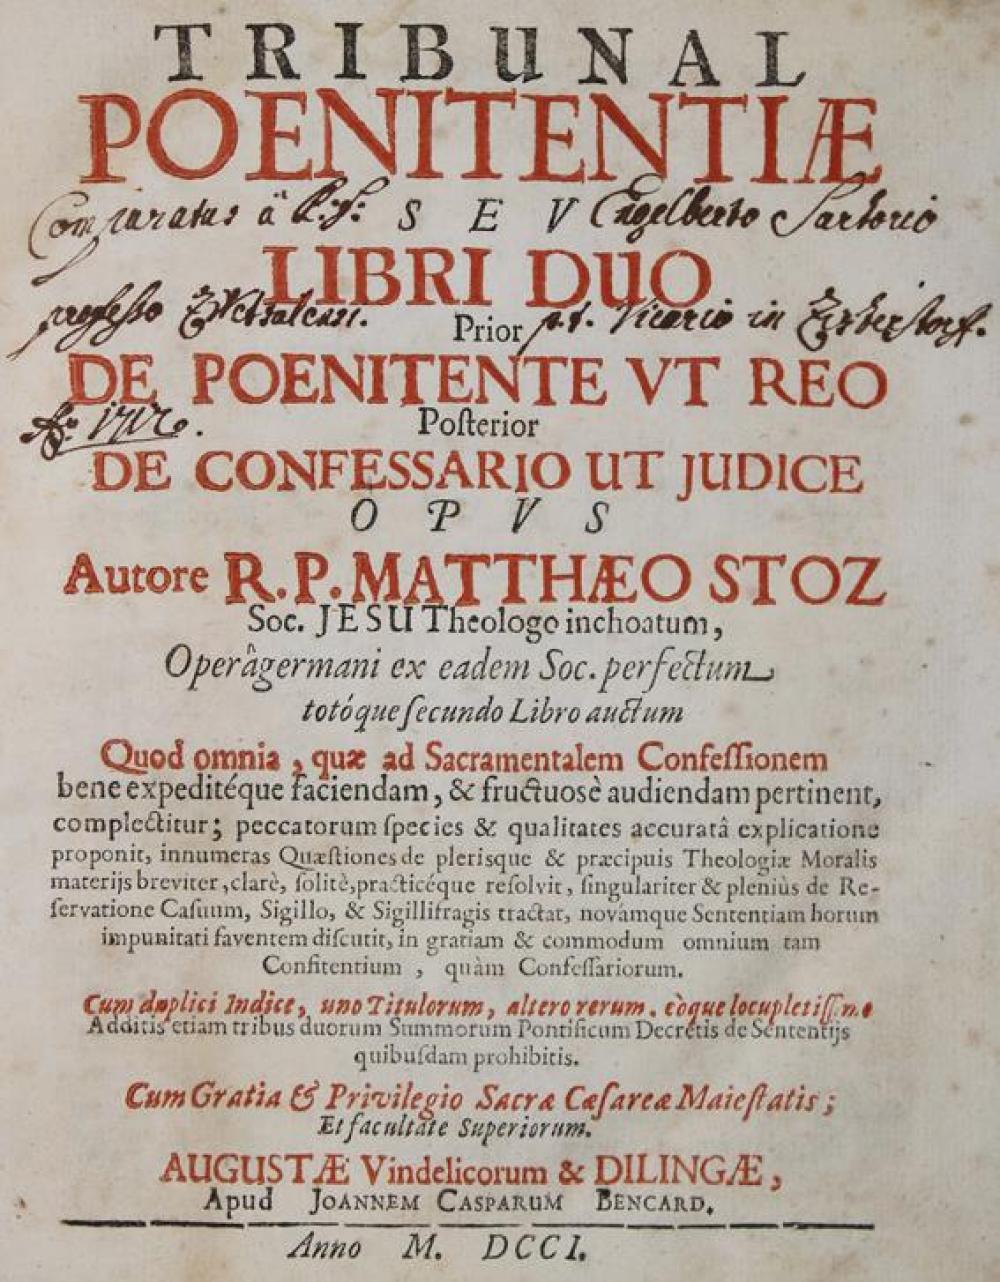 TRIBUNAL
POENITENTIÆ
Comparatus â P. F: SEV Engelberto Sartorio
LIBRI DUO
professo
Prior p.t. Vicario in
DE POENITENTE VT REO
Aō: 1712.
Poſterior
DE CONFESSARIO UT JUDICE
OPVS
Autore R.P. MATTHÆO STOZ
Soc. JESU Theologo inchoatum,
Operâ germani ex eadem Soc. perfectum
totóque ſecundo Libro auctum
Quod omnia, quæ ad Sacramentalem Confeſſionem
bene expeditéque faciendam, & fructuosè audiendam pertinent,
complectitur; peccatorum ſpecies & qualitates accuratâ explicatione
proponit, innumeras Quæſtiones de plerisque & præcipuis Theologiæ Moralis
materijs breviter, clarè, ſolitè, practicéque reſolvit, ſingulariter & pleniùs de Re-
ſervatione Caſuum, Sigillo, & Sigillifragis tractat, novámque Sententiam horum
impunitati faventem diſcutit, in gratiam & commodum omnium tam
Confitentium, quàm Confeſſariorum.
Cum duplici Indice, uno Titulorum, altero rerum. eòque locupletiſſimo
Additis etiam tribus duorum Summorum Pontificum Decretis de Sententijs
quibuſdam prohibitis.
Cum Gratia & Privilegio Sacræ Cæſareæ Maieſtatis;
Et facultate Superiorum.
AUGUSTÆ Vindelicorum & DILINGÆ,
Apud JOANNEM CASPARUM BENCARD.
Anno M. DCCI.